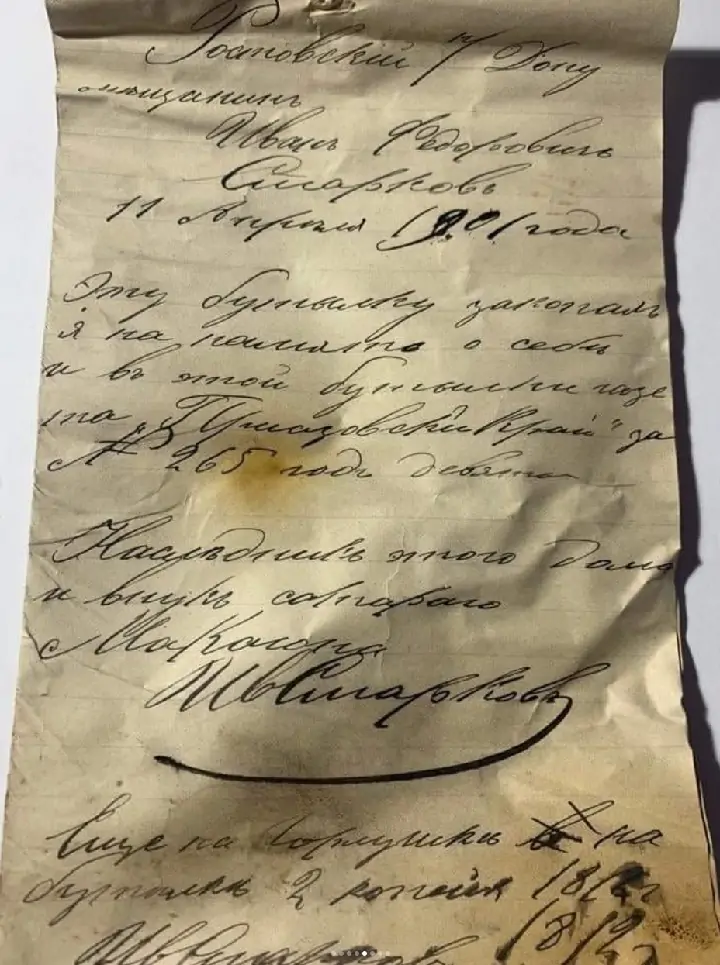 Ростовскій н/Дону
мѣщанинъ
Иванъ Федоровичъ
Старковъ
11 Апрѣля 1901 года
Эту бутылку закопалъ
я на память о себѣ
и въ этой бутылки газе
та „Приазовскій Край" за
№ 265 годъ девяты
Наслѣдникъ этого дома
и внукъ стараго
Макагона
ИвСтарковъ
Еще на горлушки на
бутылки 2 копейк